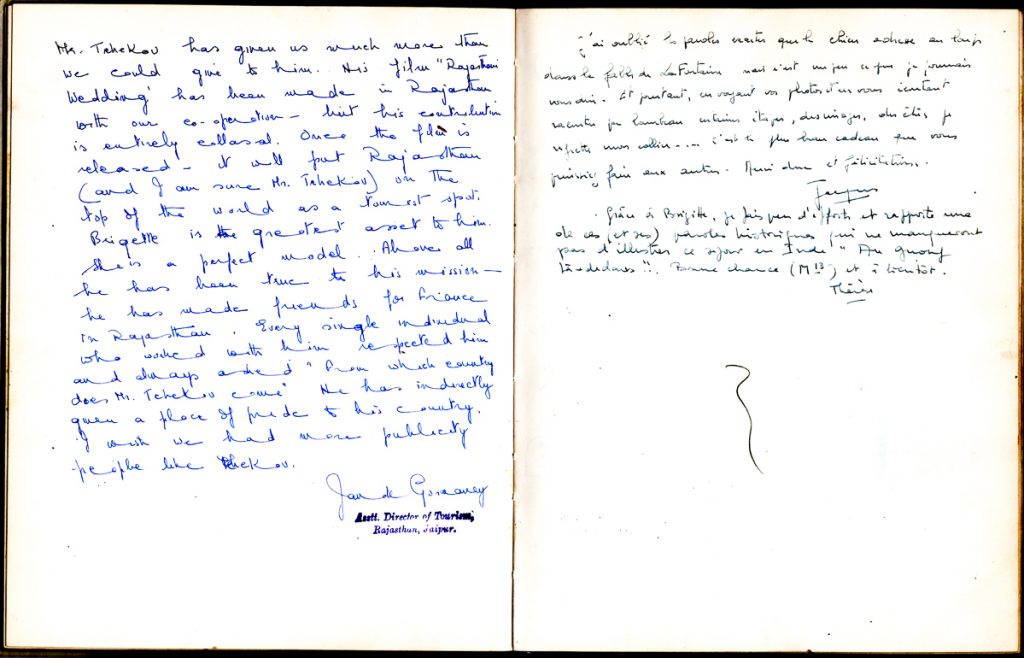 Mr. Tchekov has given us much more than
we could give to him. His film "Rajasthani
Wedding' has been made in Rajasthan
with our co-operation - but his contribution
is entirely collosal. Once the film is
released - it will put Rajasthan
(and I am sure Mr. Tchekov) on the
top of the world as a tourist spot.
Brigette is the greatest asset to him.
She is a perfect model. Above all
he has been true to his mission -
he has made friends for France
in Rajasthan. Every single individual
who worked with him respected him
and always asked "from which country
does Mr. Tchekov come" He has indirectly
given a place of pride to his country.
I wish we had more publicity
people like Tchekov.
Asstt. Director of Tourism,
Rajasthan, Jaipur.
j'ai oublié les paroles exactes que le chien adresse au loup
dans la fable de La Fontaine mais c'est un peu ce que je pourrais
vous dire. Et pourtant, en voyant vos photos et en vous écoutant
raconter par lambeau certaines étapes, des images, des étés, je
regrette mon collier.... c'est le plus beau cadeau que vous
puissiez faire aux autres. Merci donc et félicitations.
Jacques
Grâce à Brigitte, je fais peu d'efforts et rapporte une
de ces (et ses) paroles historiques qui ne manqueront
pas d'illustrer ce séjour en Inde "Au
là-dedans". Bonne chance et à bientôt.
Thérèse